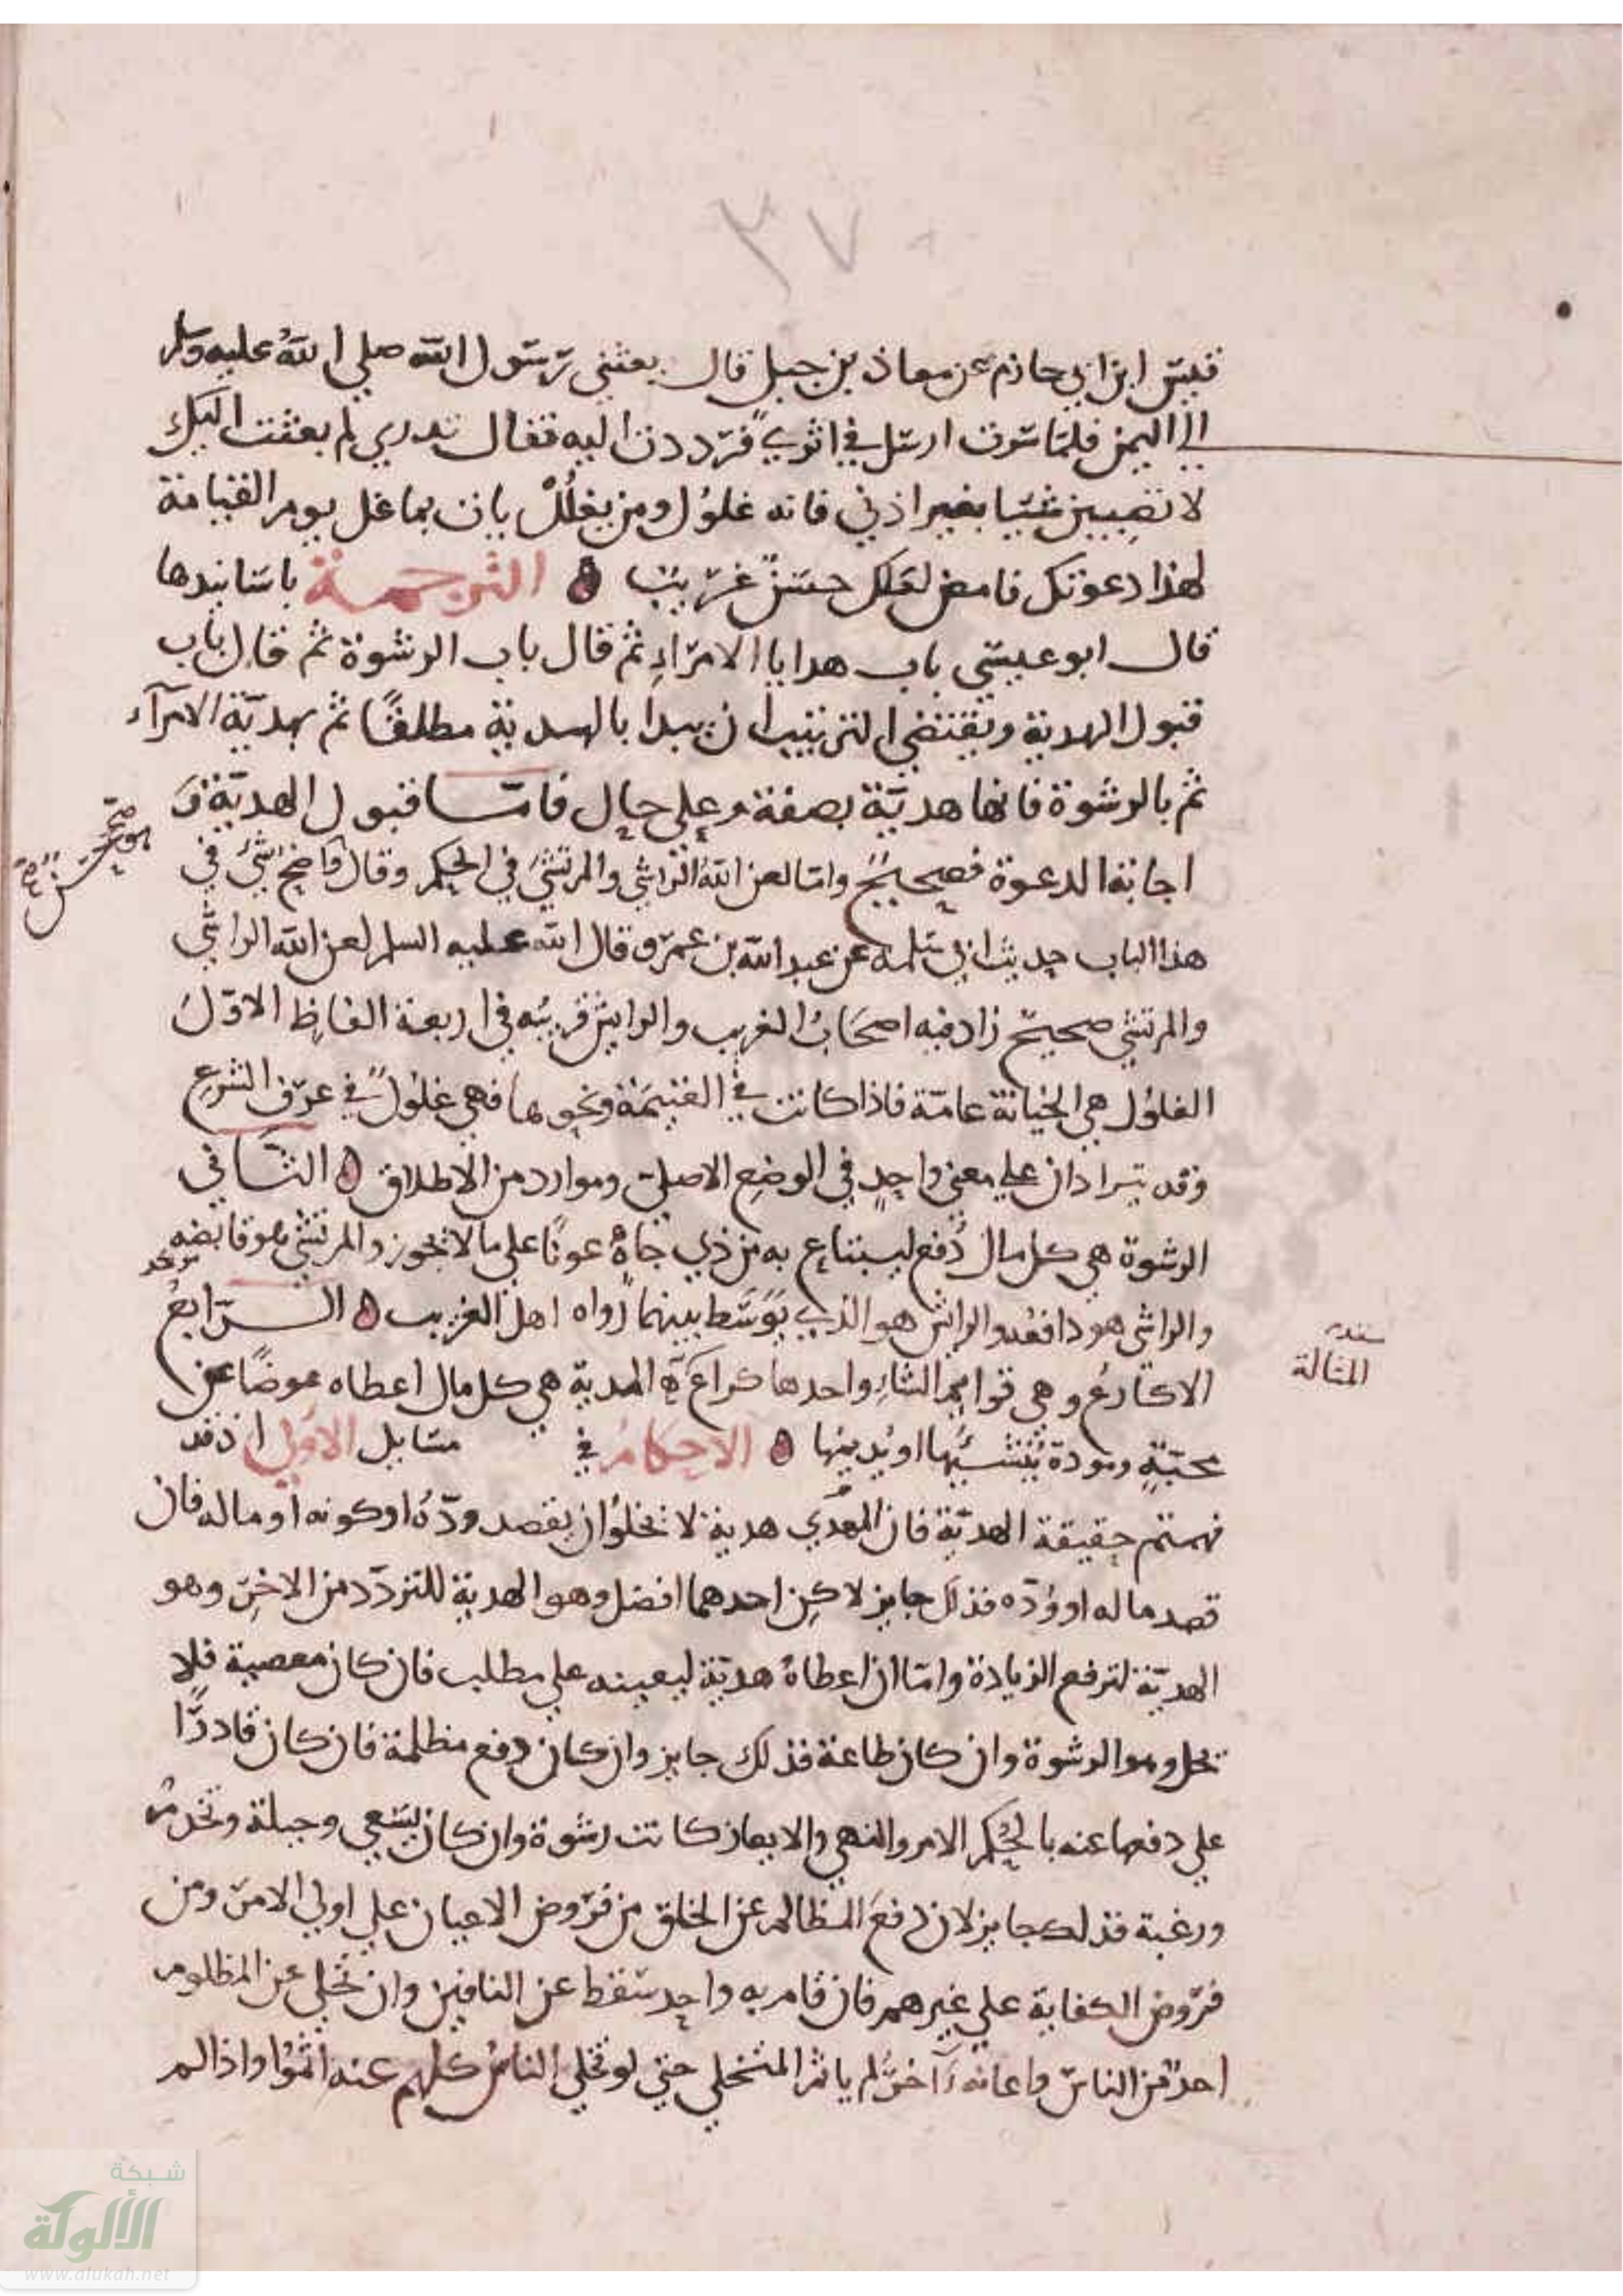 ٣٧
قيس ابن ابي حازم عن معاذ بن جبل قال بعثني رسول الله صلي الله عليه وسلم
الي اليمن فلما سرت ارسل في اثري فرددت اليه فقال تدري لم بعثت اليك
لا تصيبن شيا بغير اذني فانه غلول ومن يغلل يات بما غل يوم القيامة
لهذا دعوتك فامض لعملك حسن غريب ه الترجمة باسانيدها
قال ابو عيسي باب هدايا الامراء ثم قال باب الرشوة ثم قال باب
قبول الهدية ويقتضي الترتيب ان يبدا بالهدية مطلقا ثم بهدية الامرآء
ثم بالرشوة فانها هدية بصفة وعلي حال فاما قبول الهدية و
اجابة الدعوة فصحيح واما لعن الله الراشي والمرتشي في الحكم وقال اصح شي في
هذا الباب حديث ابي سلمة عن عبد الله بن عمرو قال الله عليه السلم لعن الله الراشي
والمرتشي صحيح زاد فيه اصحاب الغريب والرايش غريبه في اربعة الفاظ الاول
الغلول هي الخيانة عامة فاذا كانت في الغنيمة ونحوها فهي غلول في عرف الشرع
وقد يترادان علي معني واحد في الوضع الاصلي وموارد من الاطلاق ه الثاني
الرشوة هي كل مال دفع ليبتاع به من ذي جاه عونا علي ما لا يجوز والمرتشي هو قابضه
والراشي هو دافعه والرايش هو الذي يوسط بينهما رواه اهل الغريب ه الرابع
سند
المثالة
الاكارع وهي قوايم الشاء واحدها كراع ه الهدية هي كل مال اعطاه عوضا عن
محبة ومودة ينشئها او يديمها ه الاحكام في مسايل الاول اذ قد
فهمتم حقيقة الهدية فان المهدي هدية لا يخلو ان يقصد وده او كونه او ماله فان
قصد ماله او وده فذلك جايز لاكن احدهما افضل وهو الهدية للتردد من الاخر وهو
الهدية لترفع الزيادة واما ان اعطاه هدية ليعينه علي مطلب فان كان معصية فلا
تحل وهو الرشوة وان كان طاعة فذلك جايز وان كان دفع مظلمة فان كان قادرا
علي دفعها عنه بالحكم الامر والنهي والايعاز كانت رشوة وان كان بسعي وحيلة وتحرم
ورغبة فذلك جايز لان دفع المظالم عن الخلق من فروض الاعيان علي اولي الامر ومن
فروض الكفاية علي غيرهم فان قام به واحد سقط عن الباقين وان تخلي عن المظلوم
احد من الناس واعانه آخر لم ياثم المتخلي حتي لو تخلي الناس كلهم عنه اثموا واذا لم
شبكة
الألوكة
www.alukah.net